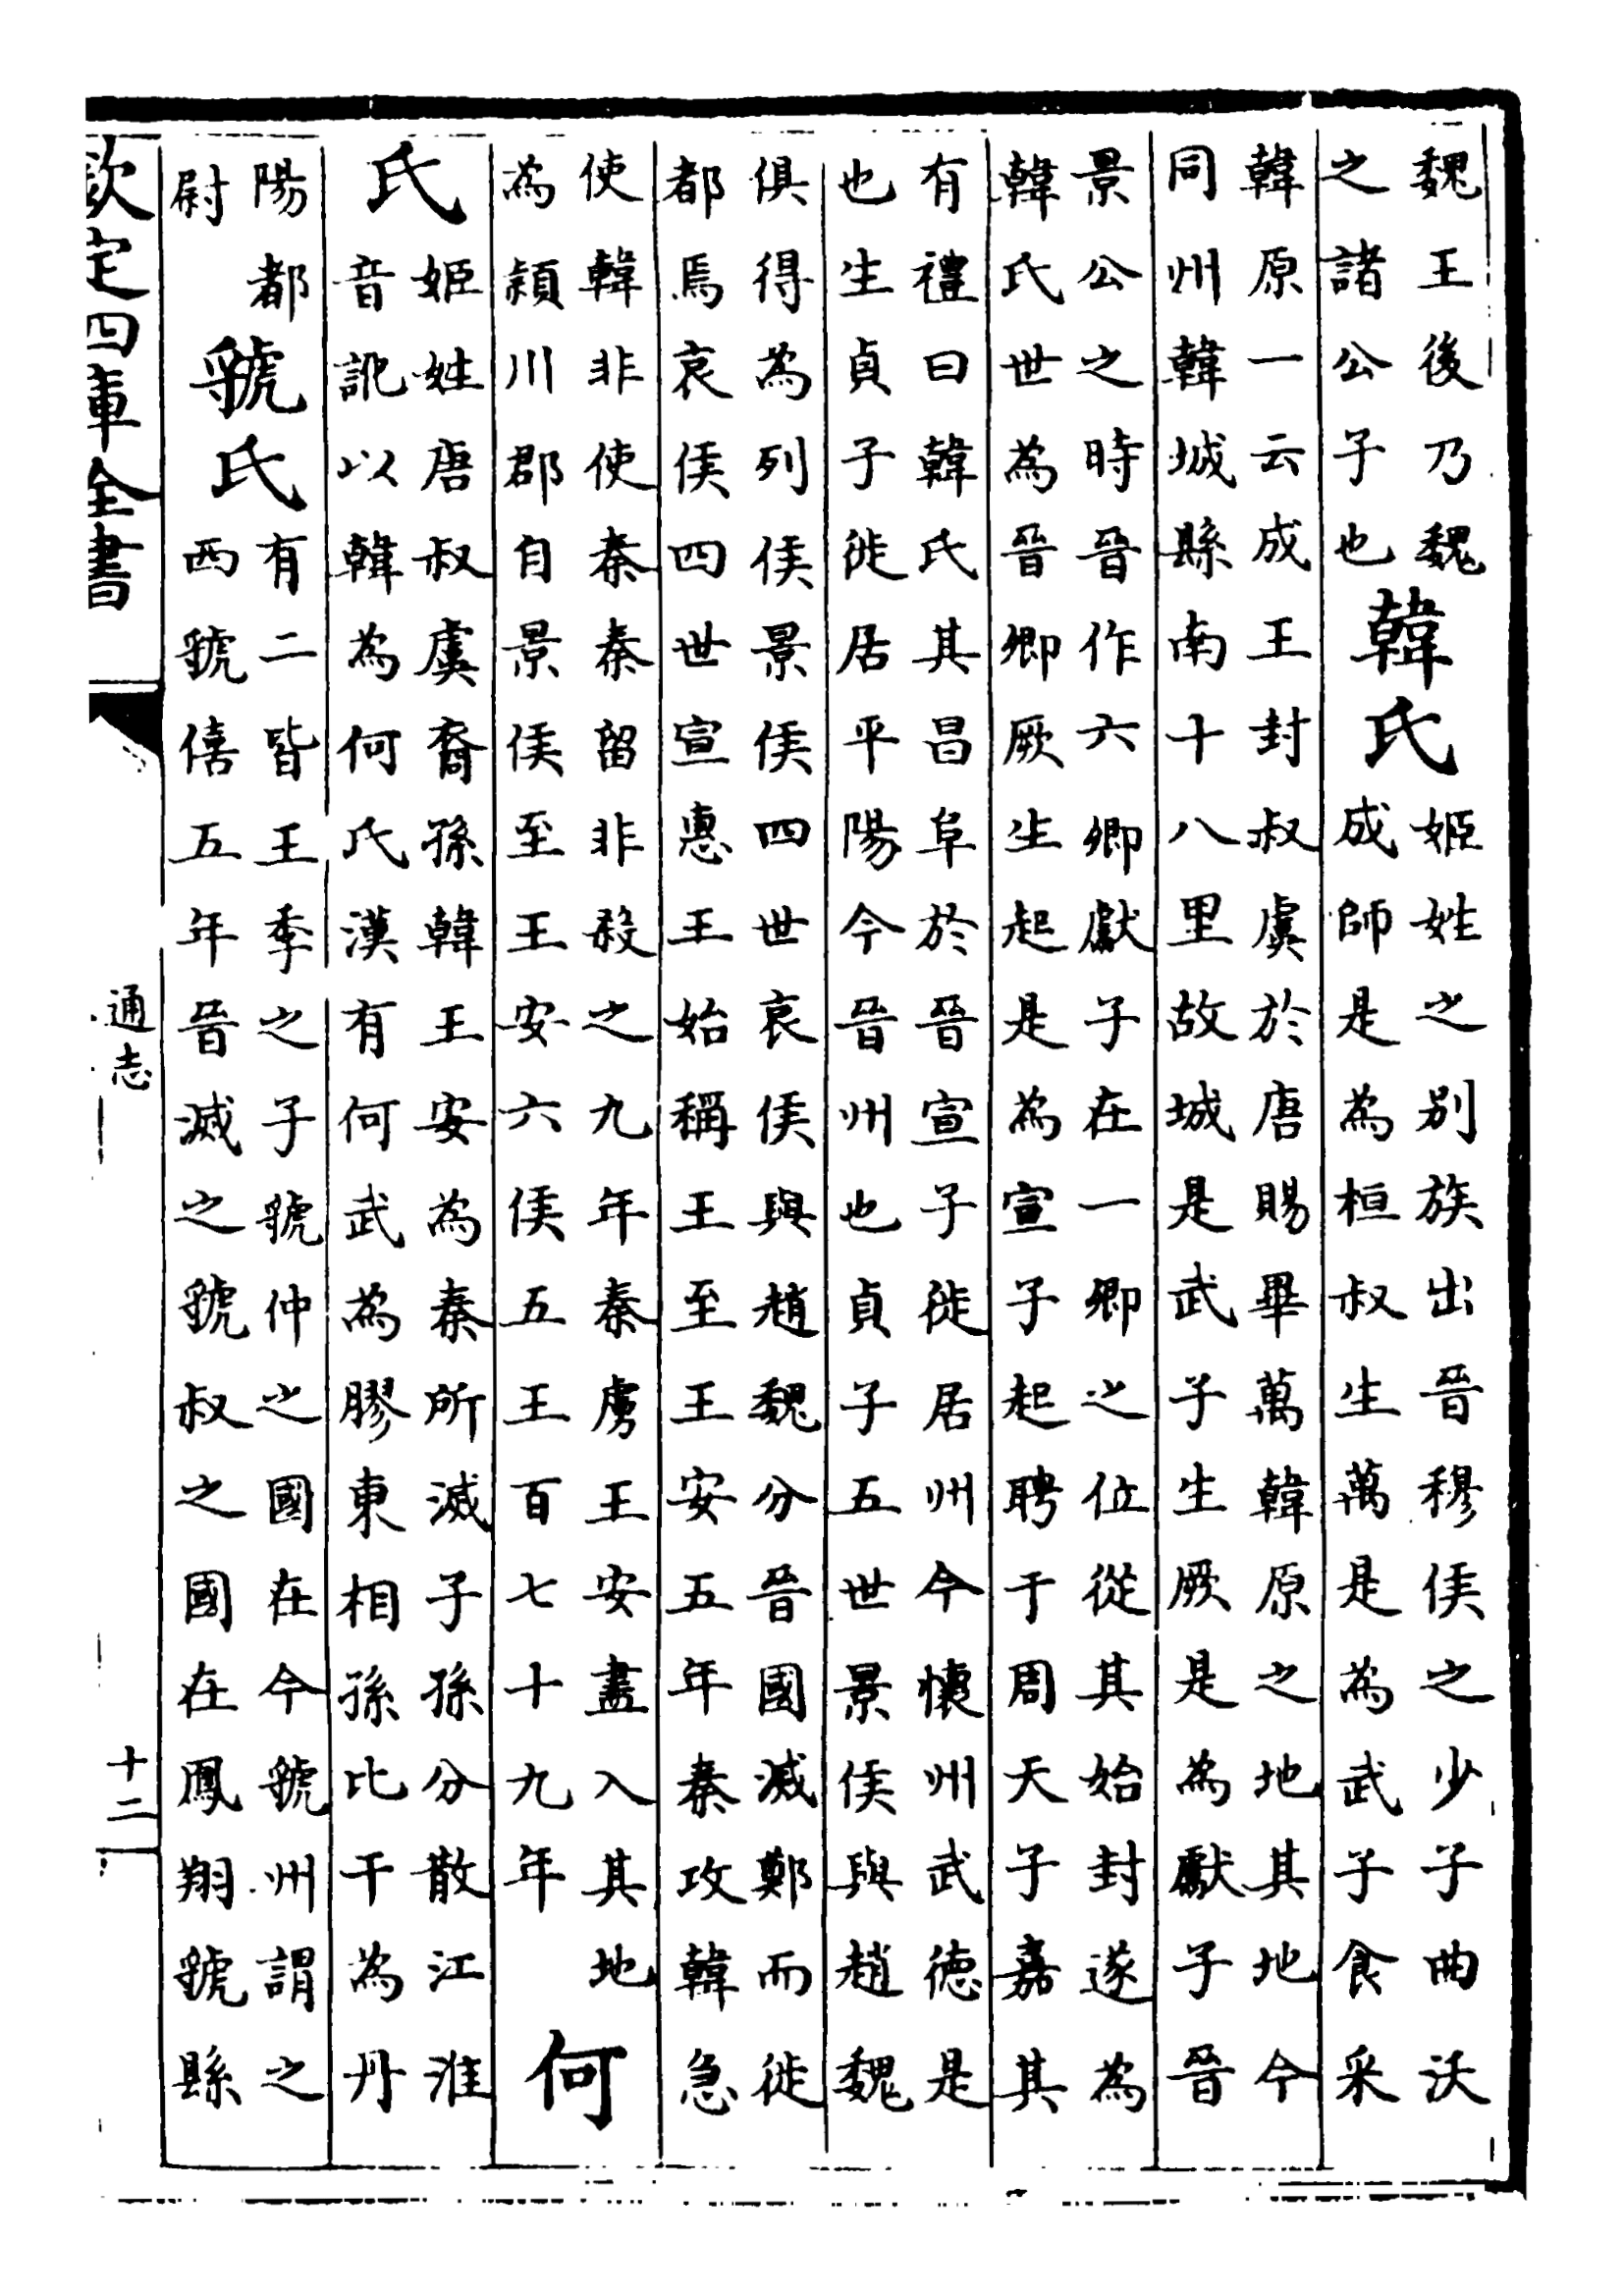 魏王後乃魏
之諸公子也
韓氏
姬姓之别族出晉穆侯之少子曲沃
成師是為桓叔生萬是為武子食采
韓原一云成王封叔虞於唐賜畢萬韓原之地其地今
同州韓城縣南十八里故城是武子生厥是為獻子晉
景公之時晉作六卿獻子在一卿之位從其始封遂為
韓氏世為晉卿厥生起是為宣子起聘于周天子嘉其
有禮曰韓氏其昌阜於晉宣子徙居州今懷州武德是
也生貞子徙居平陽今晉州也貞子五世景侯與趙魏
俱得為列侯景侯四世哀侯與趙魏分晉國滅鄭而徙
都焉哀侯四世宣惠王始稱王至王安五年秦攻韓急
使韓非使秦秦留非殺之九年秦虜王安盡入其地
為潁川郡自景侯至王安六侯五王百七十九年
何
氏
姬姓唐叔虞裔孫韓王安為秦所滅子孫分散江淮
音訛以韓為何氏漢有何武為膠東相孫比干為丹
陽都
尉
虢氏
有二皆王季之子虢仲之國在今虢州謂之
西虢僖五年晉滅之虢叔之國在鳳翔虢縣
欽定四庫全書
通志
十二